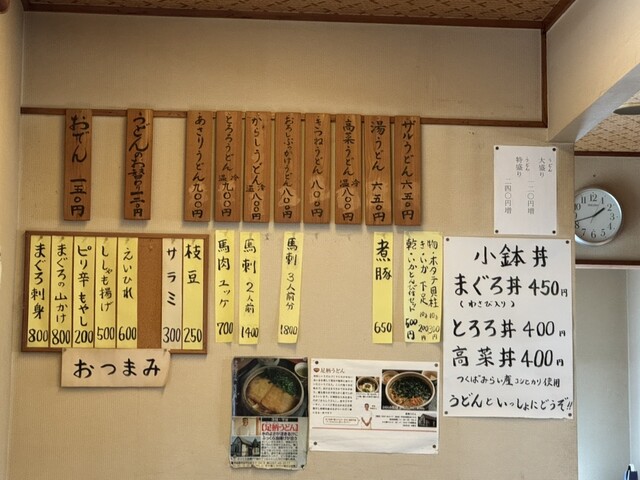 ザルうどん 六五〇円
湯うどん 六五〇円
高菜うどん 冷温 八〇〇円
きつねうどん 八〇〇円
おろしぶっかけうどん 八〇〇円
からしうどん 冷温 八〇〇円
とろろうどん 冷温 九〇〇円
あさりうどん 九〇〇円
うどんのお替り
おでん 一五〇円
うどん
大盛り 一二〇円増
うどん
特盛り 二四〇円増
乾・いかとんび 1セット 500円
煮豚 650
馬刺 3人前分 1800
馬刺 2人前 1400
馬肉ユッケ 700
枝豆 250
サラミ 300
えいひれ 600
ししゃも揚げ 500
ピリ辛もやし 200
まぐろの山かけ 800
まぐろ刺身 800
おつまみ
小鉢丼
まぐろ丼 450円
(わさび入り)
とろろ丼 400円
高菜丼 400円
つくばみらい産コシヒカリ使用
うどんといっしょにどうぞ!!
【足柄うどん】
足柄うどん